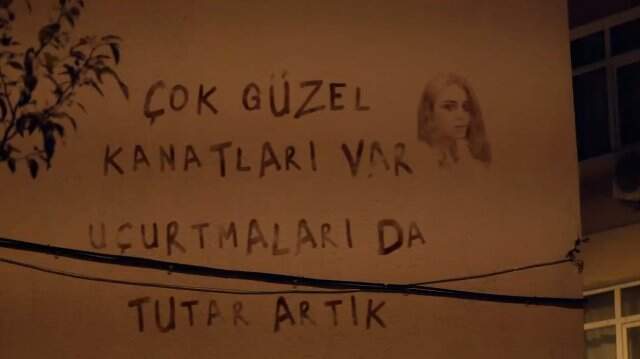 ÇOK GÜZEL
KANATLARI VAR
UÇURTMALARI DA
TUTAR ARTIK